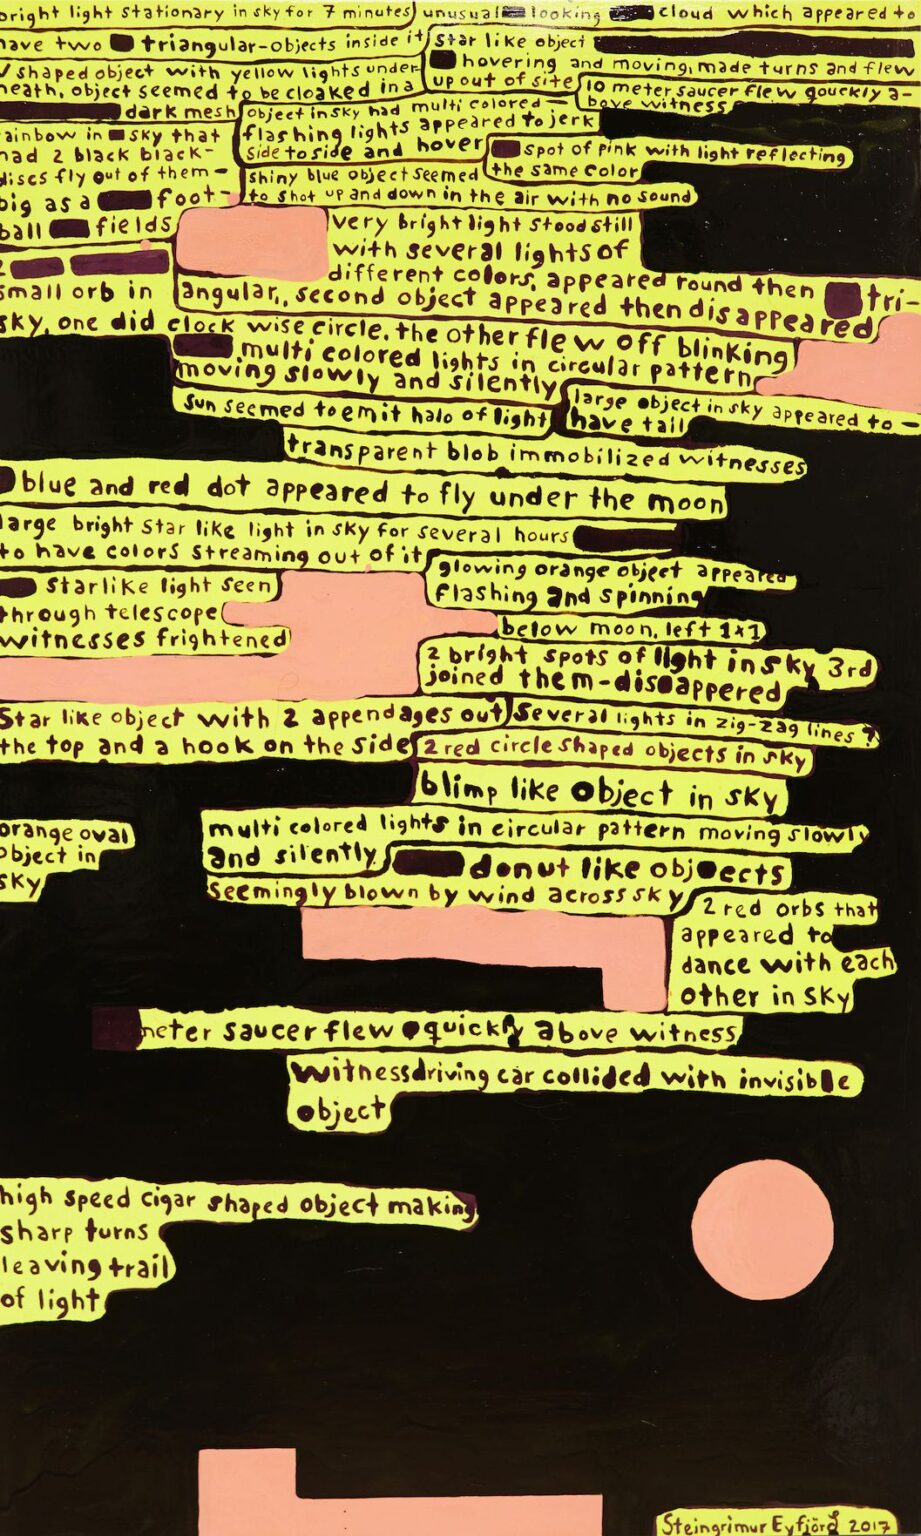 bright light stationary in sky for 7 minutes
unusual looking cloud which appeared to
have two triangular-objects inside it
star like object
hovering and moving, made turns and flew
up out of site
V shaped object with yellow lights under-
neath, object seemed to be cloaked in a
dark mesh
10 meter saucer flew qouckly a-
bove witness
object in sky had multi colored-
flashing lights appeared to jerk
side to side and hover
rainbow in sky that
had 2 black black-
discs fly out of them-
big as a foot-
ball fields
spot of pink with light reflecting
the same color
shiny blue object seemed
to shot up and down in the air with no sound
very bright light stood still
with several lights of
different colors, appeared round then tri-
angular,, second object appeared then disappeared
2
small orb in
sky, one did clock wise circle. the other flew off blinking
multi colored lights in circular pattern
moving slowly and silently
sun seemed to emit halo of light
large object in sky appeared to-
have tail
transparent blob immobilized witnesses
blue and red dot appeared to fly under the moon
large bright star like light in sky for several hours
to have colors streaming out of it
glowing orange object appeared
flashing and spinning
starlike light seen
through telescope
witnesses frightened
below moon, left 1x1
2 bright spots of light in sky 3rd
joined them-disappered
Star like object with 2 appendages out
the top and a hook on the side
several lights in zig-zag lines ?
2 red circle shaped objects in sky
blimp like object in sky
orange oval
object in
sky
multi colored lights in circular pattern moving slowly
and silently
donut like objects
seemingly blown by wind across sky
2 red orbs that
appeared to
dance with each
other in sky
meter saucer flew quickly above witness
witness driving car collided with invisible
object
high speed cigar shaped object making
sharp turns
leaving trail
of light
Steingrimur Eyfjörð 2017